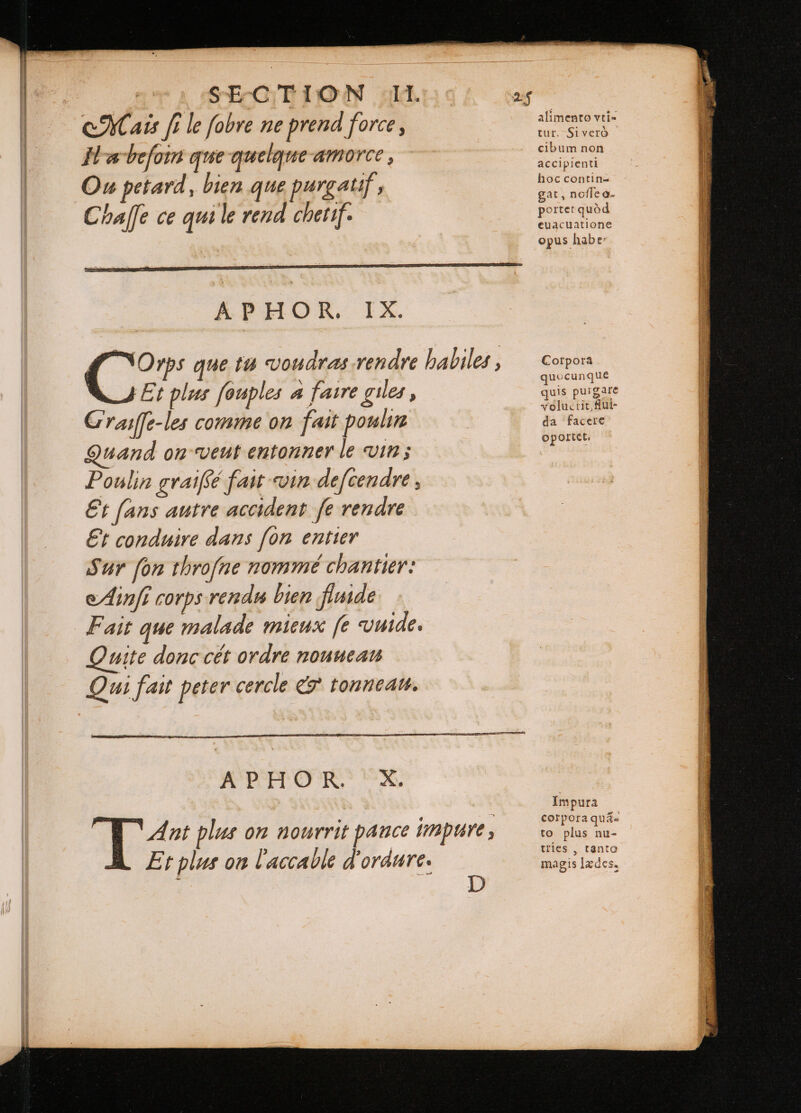 SECTION II. 25
Mais ſi le ſobre ne prend force,
Il a beſoin que quelque amorce,
Ou petard, bien que purgatif,
Chaſſe ce qui le rend chetif.
alimento vti-
tur. Si verò
cibum non
accipienti
hoc contin-
gat, noſſe o-
portet quòd
euacuatione
opus habe
APHOR. IX.
COrps que tu voudras rendre habiles,
Et plus ſouples à faire giles,
Graiſſe-les comme on fait poulin
Quand on veut entonner le vin;
Poulin graiſſé fait vin deſcendre,
Et ſans autre accident ſe rendre
Et conduire dans ſon entier
Sur ſon throſne nommé chantier:
Ainſi corps rendu bien fluide
Fait que malade mieux ſe vuide.
Quite donc cét ordre nouueau
Qui fait peter cercle & tonneau.
Corpora
quocunque
quis purgare
voluerit, flui-
da facere
oportet.
APHOR. X.
TAnt plus on nourrit pance impure,
Et plus on l'accable d'ordure.
Impura
corpora quã-
to plus nu-
tries, tanto
magis lædes.
D